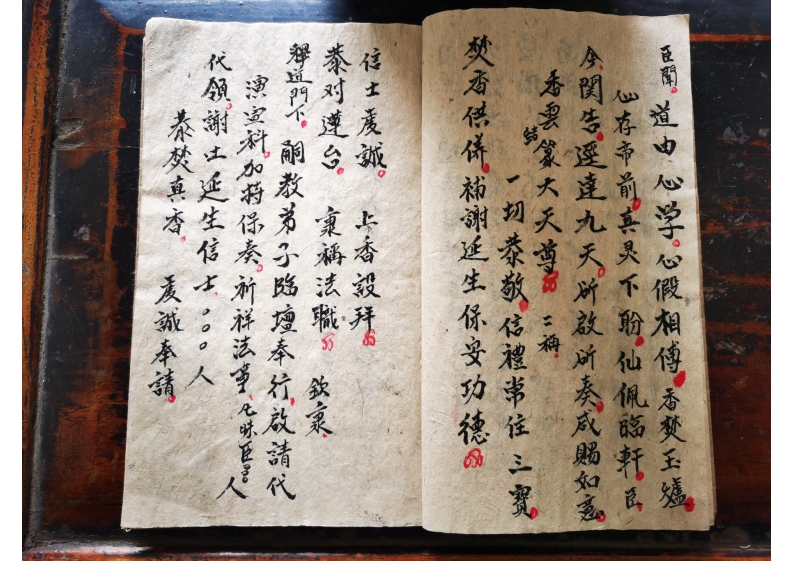 臣聞道由心学心假相傳香焚玉爐
心存帝前真灵下盼仙佩臨軒臣
今関告逕達九天所啟所奏咸賜如意
香雲結篆大天尊三稱
一切恭敬信禮常住三寶
焚香供併補謝延生保安功德
信士虔誠上香設拜
恭对蓮台稟稱法職欽稟
釋道門下嗣教弟子臨壇奉行啟請代
演宣科加持保奏祈祥法事凡昧臣人
代領謝土延生信士○○○人
恭焚真香虔誠奉請